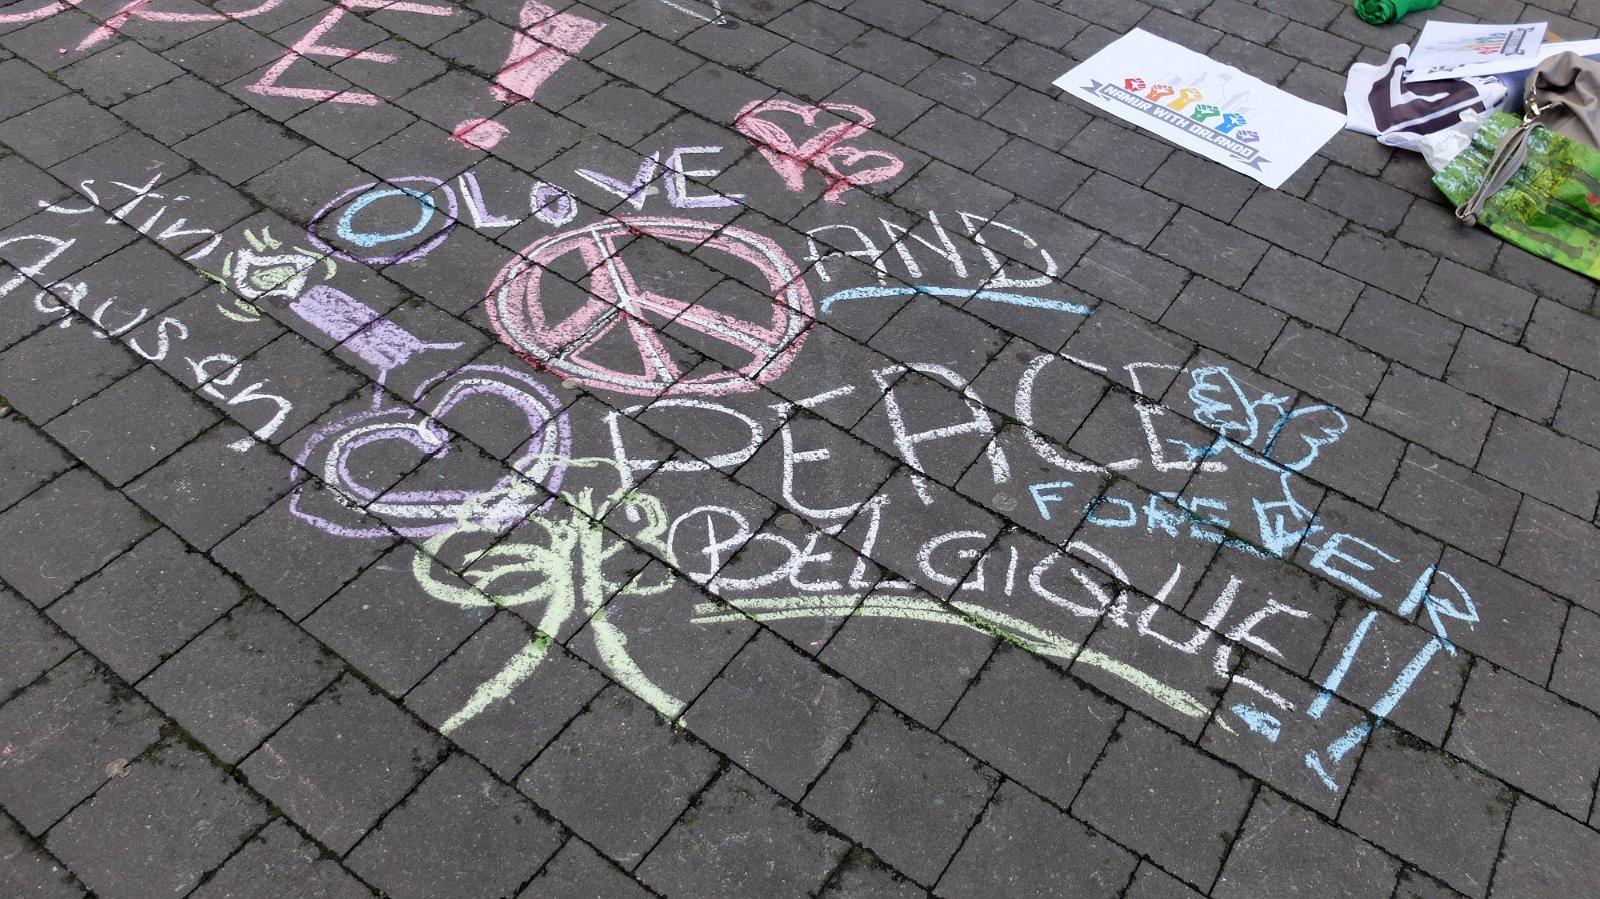 PE!
LOVE
AND
PEACE
FOREVER!!
BELGIQUE
stin
Dausen
NAMUR WITH ORLANDO